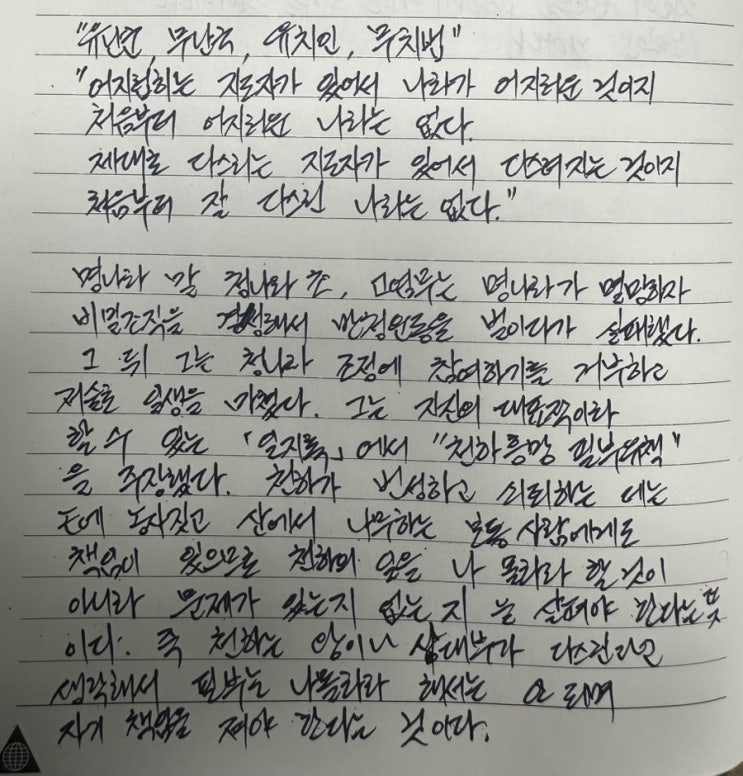 "유난군, 무난국, 유치인, 무치법"
"어지럽히는 지도자가 있어서 나라가 어지러운 것이지
처음부터 어지러운 나라는 없다.
제대로 다스리는 지도자가 있어서 다스려지는 것이지
처음부터 잘 다스린 나라는 없다."
명나라 말 청나라 초, 고염무는 명나라가 멸망하자
비밀조직을 결성해서 반청운동을 벌이다가 실패했다.
그 뒤 그는 청나라 조정에 참여하기를 거부하고
저술로 일생을 마쳤다. 그는 자신의 대표작이라
할 수 있는 「일지록」에서 "천하흥망 필부유책"
을 주장했다. 천하가 번성하고 쇠퇴하는 데는
논에 농사짓고 산에서 나무하는 보통 사람에게도
책임이 있으므로 천하의 일을 나 몰라라 할 것이
아니라 문제가 있는지 없는지 늘 살펴야 한다는 뜻
이다. 즉 천하는 왕이나 사대부가 다스린다고
생각해서 필부는 나몰라라 해서는 안 되며
자기 책임을 져야 한다는 것이다.